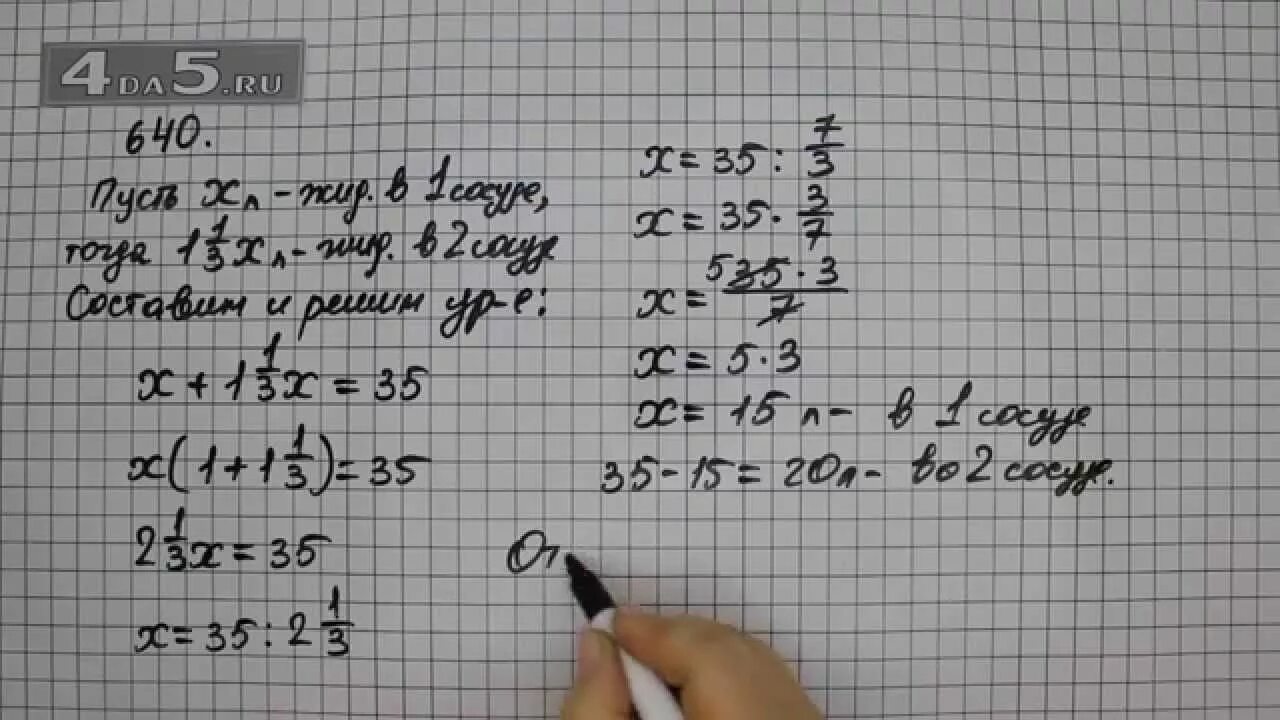 4DA5.RU
640.
Пусть x л - жид. в 1 сосуде,
тогда 1 1/3 x л - жид. в 2 сосуде
Составим и решим ур-е:
x + 1 1/3 x = 35
x(1 + 1 1/3) = 35
2 1/3 x = 35
x = 35 : 2 1/3
x = 35 : 7/3
x = 35 · 3/7
x = 5 35 · 3 / 7
x = 5 · 3
x = 15 л - в 1 сосуде
35 - 15 = 20 л - во 2 сосуде.
От